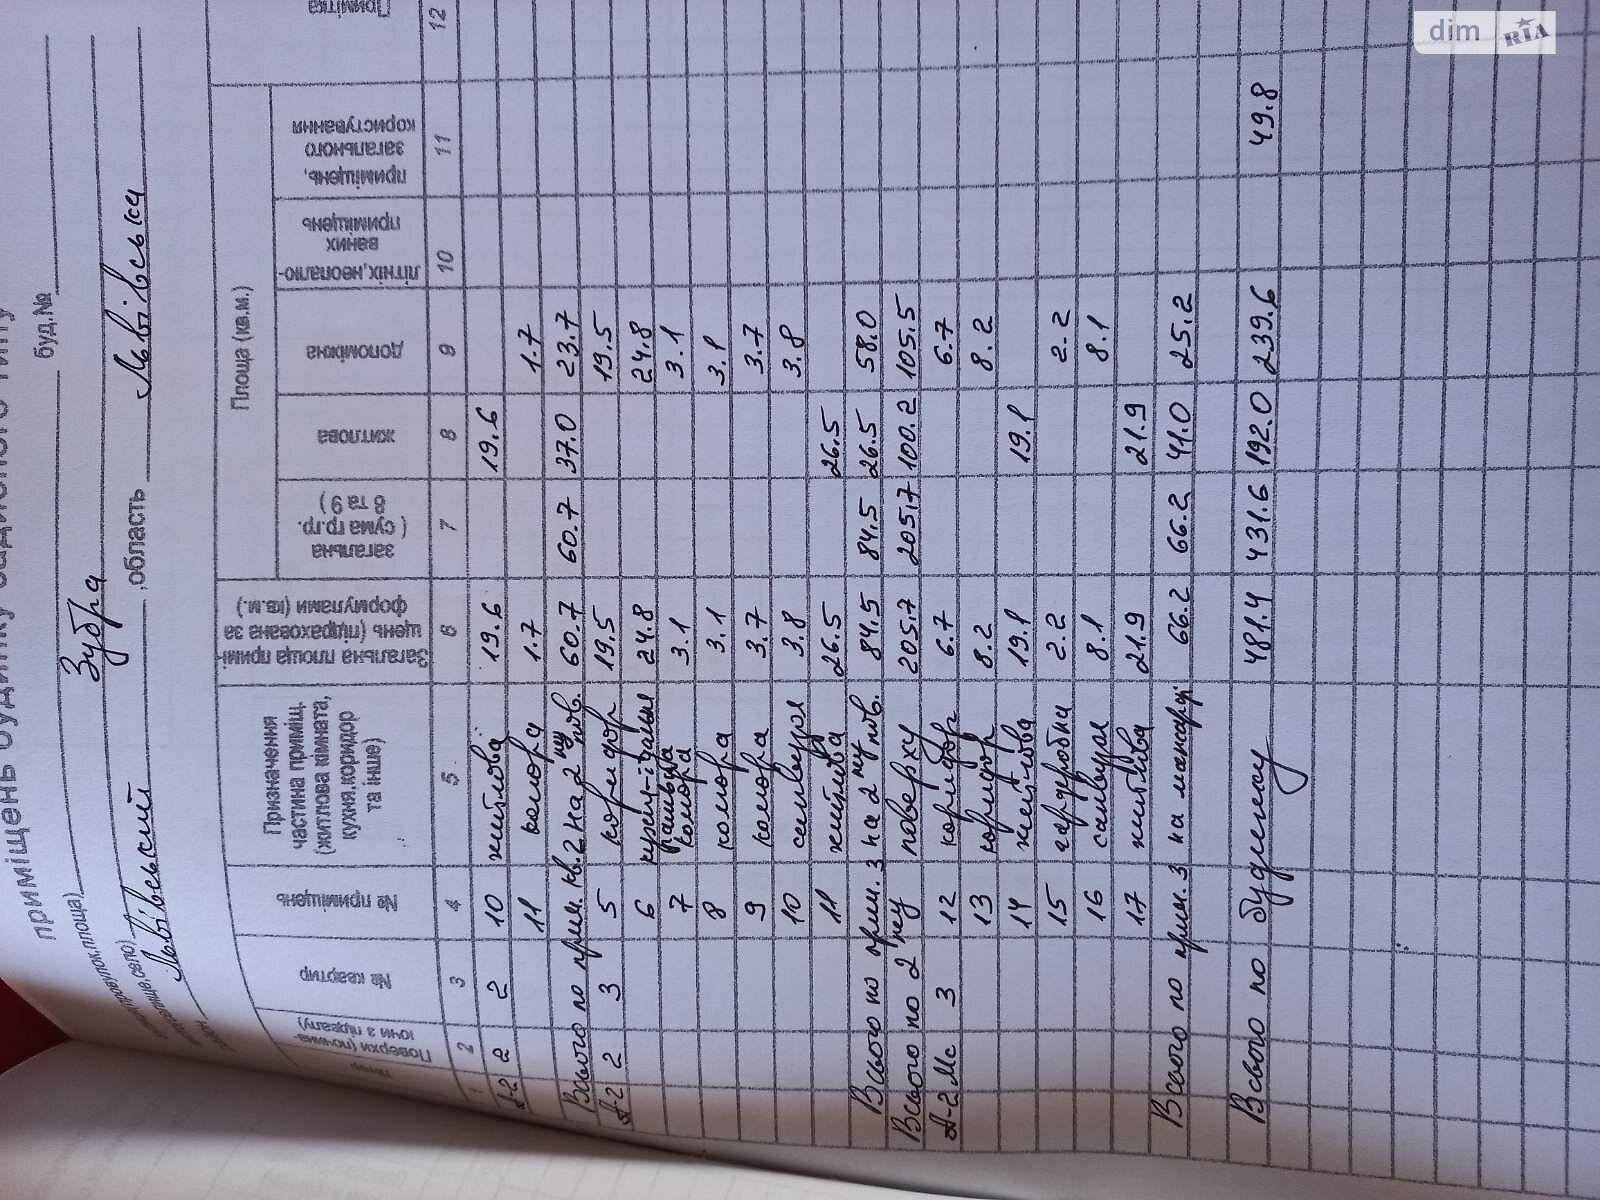 приміщень будинку садибного типу
площа)
буд.№
Зубра
село)
Львівський
,область
Львівська
Поверхи (почина-
ючи з підвалу)
№ квартир
№ приміщень
Призначення
частина приміщ.
(житлова кімната,
кухня,коридор
та інше)
Загальна площа примі-
щень (підрахована за
формулами (кв.м.)
Площа (кв.м.)
загальна
( сума гр.гр.
8 та 9 )
житлова
допоміжна
літніх,неопалю-
ваних
приміщень
приміщень,
загального
користування
Примітка
1 2 3 4 5 6 7 8 9 10 11 12
А-2 2 2 10 житлова 19.6 19.6
11 комора 1.7 1.7
Всього по прим. кв. 2 на 2 му пов. 60.7 60.7 37.0 23.7
А-2 2 3 5 коридор 19.5 19.5
6 кухня-їдальня 24.8 24.8
7 комора 3.1 3.1
8 комора 3.1 3.1
9 комора 3.7 3.7
10 санвузол 3.8 3.8
11 житлова 26.5 26.5
Всього по прим. 3 на 2 му пов. 84.5 84.5 26.5 58.0
Всього по 2 му поверху 205.7 205.7 100.2 105.5
А-2 Мс 3 12 коридор 6.7 6.7
13 коридор 8.2 8.2
14 житлова 19.1 19.1
15 гардеробна 2.2 2.2
16 санвузол 8.1 8.1
17 житлова 21.9 21.9
Всього по прим. 3 на мансарді 66.2 66.2 41.0 25.2
Всього по будинку 481.4 431.6 192.0 239.6 49.8
dim RIA